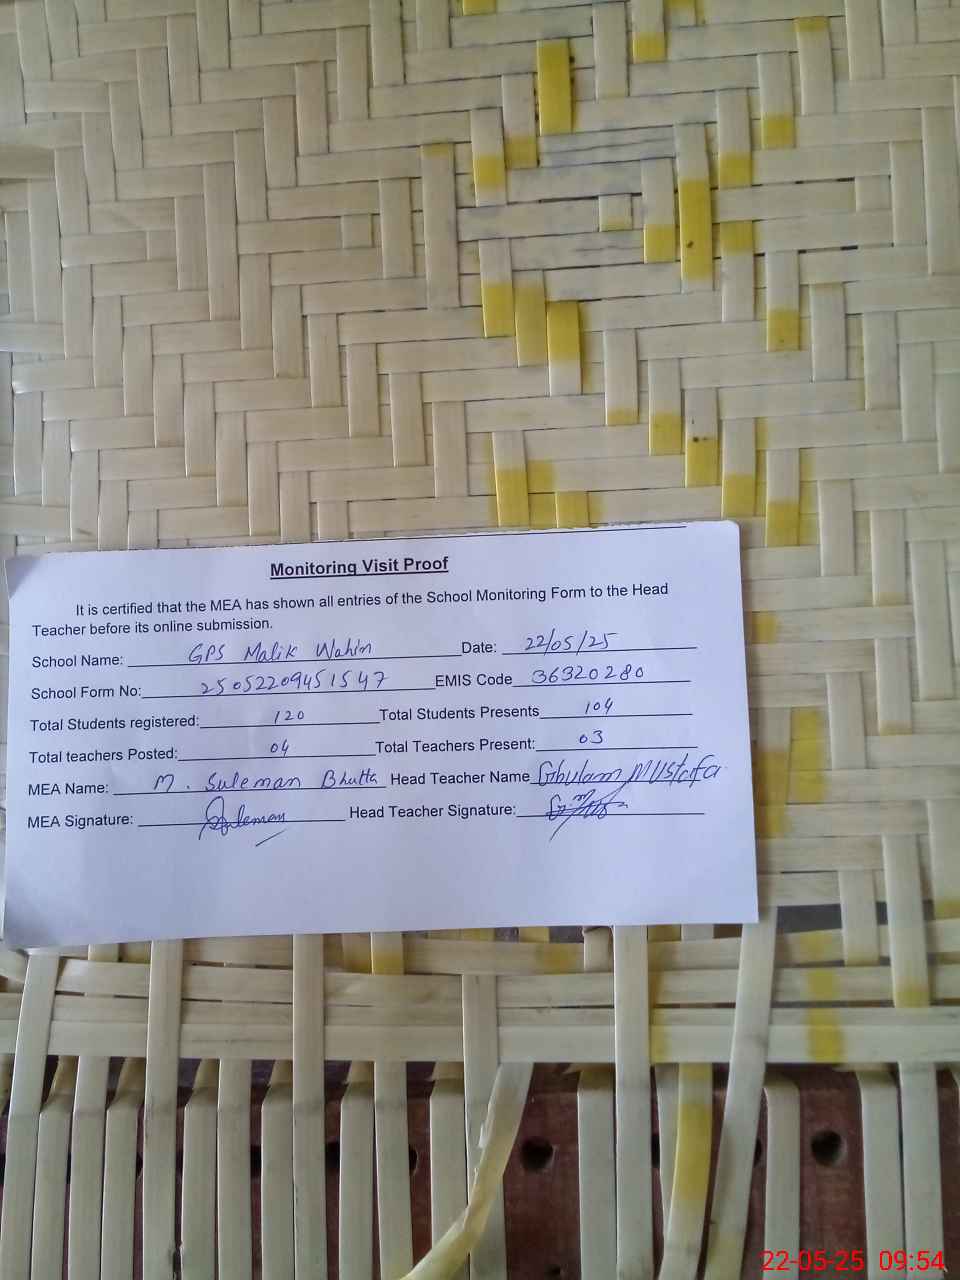 Monitoring Visit Proof
It is certified that the MEA has shown all entries of the School Monitoring Form to the Head
Teacher before its online submission.
School Name: GPS Malik Wahin Date: 22/05/25
School Form No: 2505220945 1547 EMIS Code 36320280
Total Students registered: 120 Total Students Presents 104
Total teachers Posted: 04 Total Teachers Present: 03
MEA Name: M. Suleman Bhutta Head Teacher Name Ghulam Mustafa
MEA Signature: Suleman Head Teacher Signature:
22-05-25 09:54